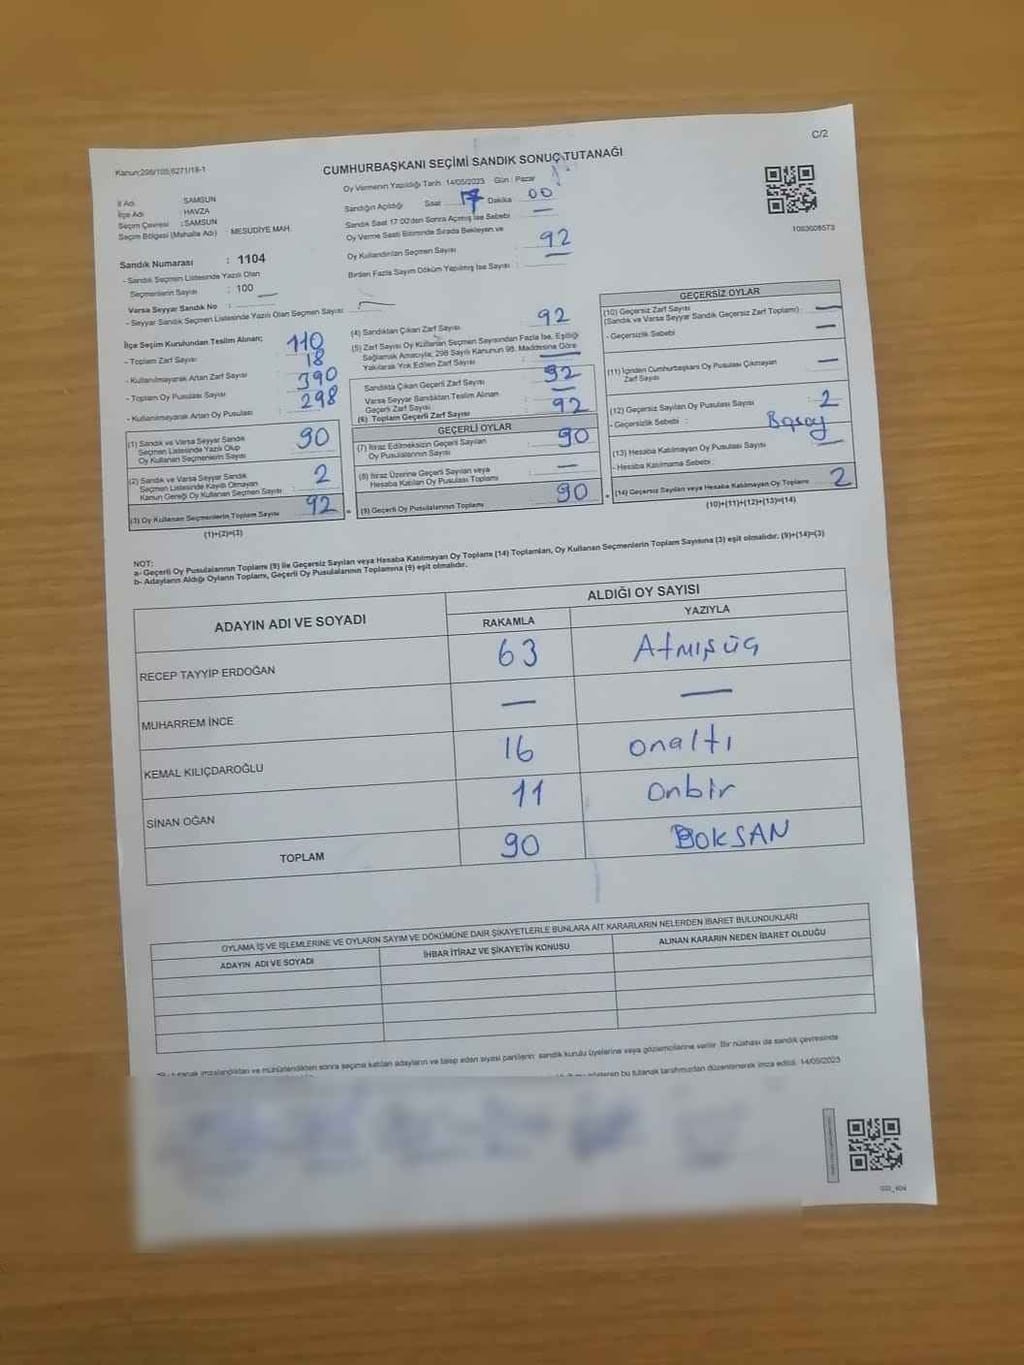 C/2
Kanun:298/105,6271/18-1
CUMHURBAŞKANI SEÇİMİ SANDIK SONUÇ TUTANAĞI
Oy Vermenin Yapıldığı Tarih: 14/05/2023 Gün : Pazar
İl Adı : SAMSUN
İlçe Adı : HAVZA
Seçim Çevresi : SAMSUN
Seçim Bölgesi (Mahalle Adı) : MESUDİYE MAH.
Sandığın Açıldığı Saat 17 Dakika 00
Sandık Saat 17:00'den Sonra Açılmış İse Sebebi : —
Oy Verme Saati Bitiminde Sırada Bekleyen ve
Oy Kullandırılan Seçmen Sayısı : 92
Birden Fazla Sayım Döküm Yapılmış İse Sayısı : —
1083608573
Sandık Numarası : 1104
- Sandık Seçmen Listesinde Yazılı Olan
Seçmenlerin Sayısı : 100
Varsa Seyyar Sandık No : —
- Seyyar Sandık Seçmen Listesinde Yazılı Olan Seçmen Sayısı: —
İlçe Seçim Kurulundan Teslim Alınan;
- Toplam Zarf Sayısı 110
- Kullanılmayarak Artan Zarf Sayısı 18
- Toplam Oy Pusulası Sayısı 390
- Kullanılmayarak Artan Oy Pusulası 298
(1) Sandık ve Varsa Seyyar Sandık
Seçmen Listesinde Yazılı Olup
Oy Kullanan Seçmenlerin Sayısı 90
(2) Sandık ve Varsa Seyyar Sandık
Seçmen Listesinde Kayıtlı Olmayan
Kanun Gereği Oy Kullanan Seçmen Sayısı 2
(3) Oy Kullanan Seçmenlerin Toplam Sayısı 92
(1)+(2)=(3)
(4) Sandıktan Çıkan Zarf Sayısı 92
(5) Zarf Sayısı Oy Kullanan Seçmen Sayısından Fazla İse, Eşitliği
Sağlamak Amacıyla, 298 Sayılı Kanunun 98. Maddesine Göre
Yakılarak Yok Edilen Zarf Sayısı : —
Sandıkta Çıkan Geçerli Zarf Sayısı : 92
Varsa Seyyar Sandıktan Teslim Alınan
Geçerli Zarf Sayısı : —
(6) Toplam Geçerli Zarf Sayısı : 92
GEÇERLİ OYLAR
(7) İtiraz Edilmeksizin Geçerli Sayılan
Oy Pusulalarının Sayısı : 90
(8) İtiraz Üzerine Geçerli Sayılan veya
Hesaba Katılan Oy Pusulası Toplamı : —
(9) Geçerli Oy Pusulalarının Toplamı 90
GEÇERSİZ OYLAR
(10) Geçersiz Zarf Sayısı
(Sandık ve Varsa Seyyar Sandık Geçersiz Zarf Toplamı) : —
- Geçersizlik Sebebi : —
(11) İçinden Cumhurbaşkanı Oy Pusulası Çıkmayan
Zarf Sayısı : —
(12) Geçersiz Sayılan Oy Pusulası Sayısı : 2
- Geçersizlik Sebebi :
(13) Hesaba Katılmayan Oy Pusulası Sayısı : —
- Hesaba Katılmama Sebebi :
(14) Geçersiz Sayılan veya Hesaba Katılmayan Oy Toplamı 2
(10)+(11)+(12)+(13)=(14)
NOT:
a- Geçerli Oy Pusulalarının Toplamı (9) ile Geçersiz Sayılan veya Hesaba Katılmayan Oy Toplamı (14) Toplamları, Oy Kullanan Seçmenlerin Toplam Sayısına (3) eşit olmalıdır. (9)+(14)=(3)
b- Adayların Aldığı Oyların Toplamı, Geçerli Oy Pusulalarının Toplamına (9) eşit olmalıdır.
ADAYIN ADI VE SOYADI
ALDIĞI OY SAYISI
RAKAMLA YAZIYLA
RECEP TAYYİP ERDOĞAN 63 Atmışüç
MUHARREM İNCE — —
KEMAL KILIÇDAROĞLU 16 onaltı
SİNAN OĞAN 11 onbir
TOPLAM 90 DOKSAN
OYLAMA İŞ VE İŞLEMLERİNE VE OYLARIN SAYIM VE DÖKÜMÜNE DAİR ŞİKAYETLERLE BUNLARA AİT KARARLARIN NELERDEN İBARET BULUNDUKLARI
ADAYIN ADI VE SOYADI İHBAR İTİRAZ VE ŞİKAYETİN KONUSU ALINAN KARARIN NEDEN İBARET OLDUĞU
tutanak imzalandıktan ve mühürlendikten sonra seçime katılan adayların ve talep eden siyasi partilerin sandık kurulu üyelerine veya gözlemcilerine verilir. Bir nüshası da sandık çevresinde
gösteren bu tutanak tarafımızdan düzenlenerek imza edildi. 14/05/2023